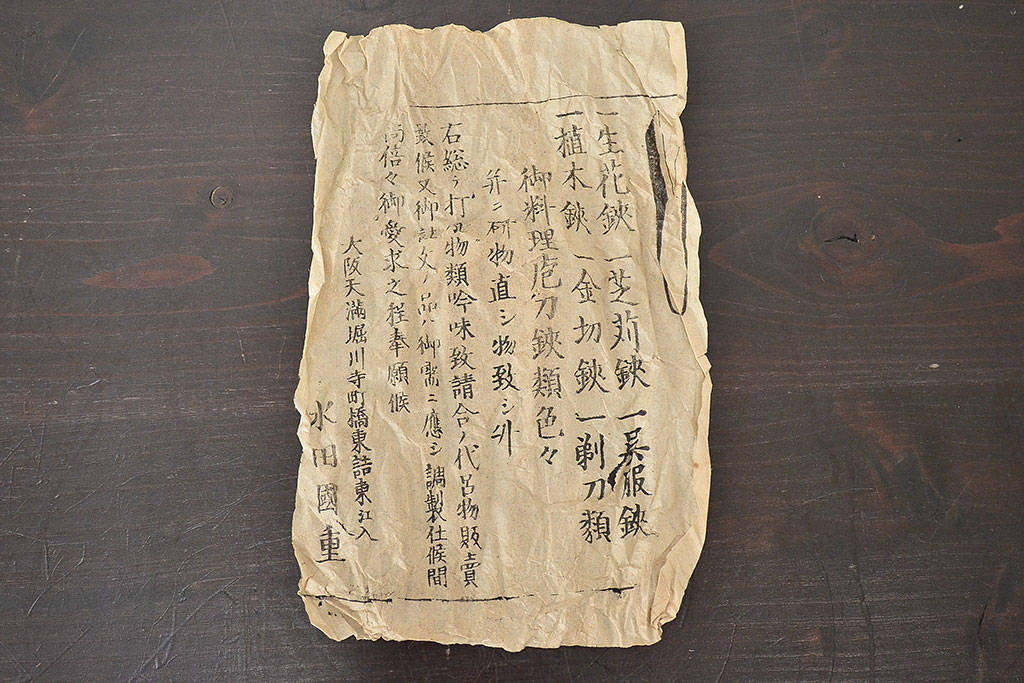 一生花鋏 一芝苅鋏 一呉服鋏
一植木鋏 一金切鋏 一剃刀類
御料理庖刀鋏類色々
并ニ研物直シ物致シ
右総テ打刃物類吟味致請合ノ代呂物販賣
致候又御註文ノ品ハ御需ニ應シ調製仕候間
尚倍々御愛求之程奉願候
大阪天満堀川寺町橋東詰東江入
水田國重